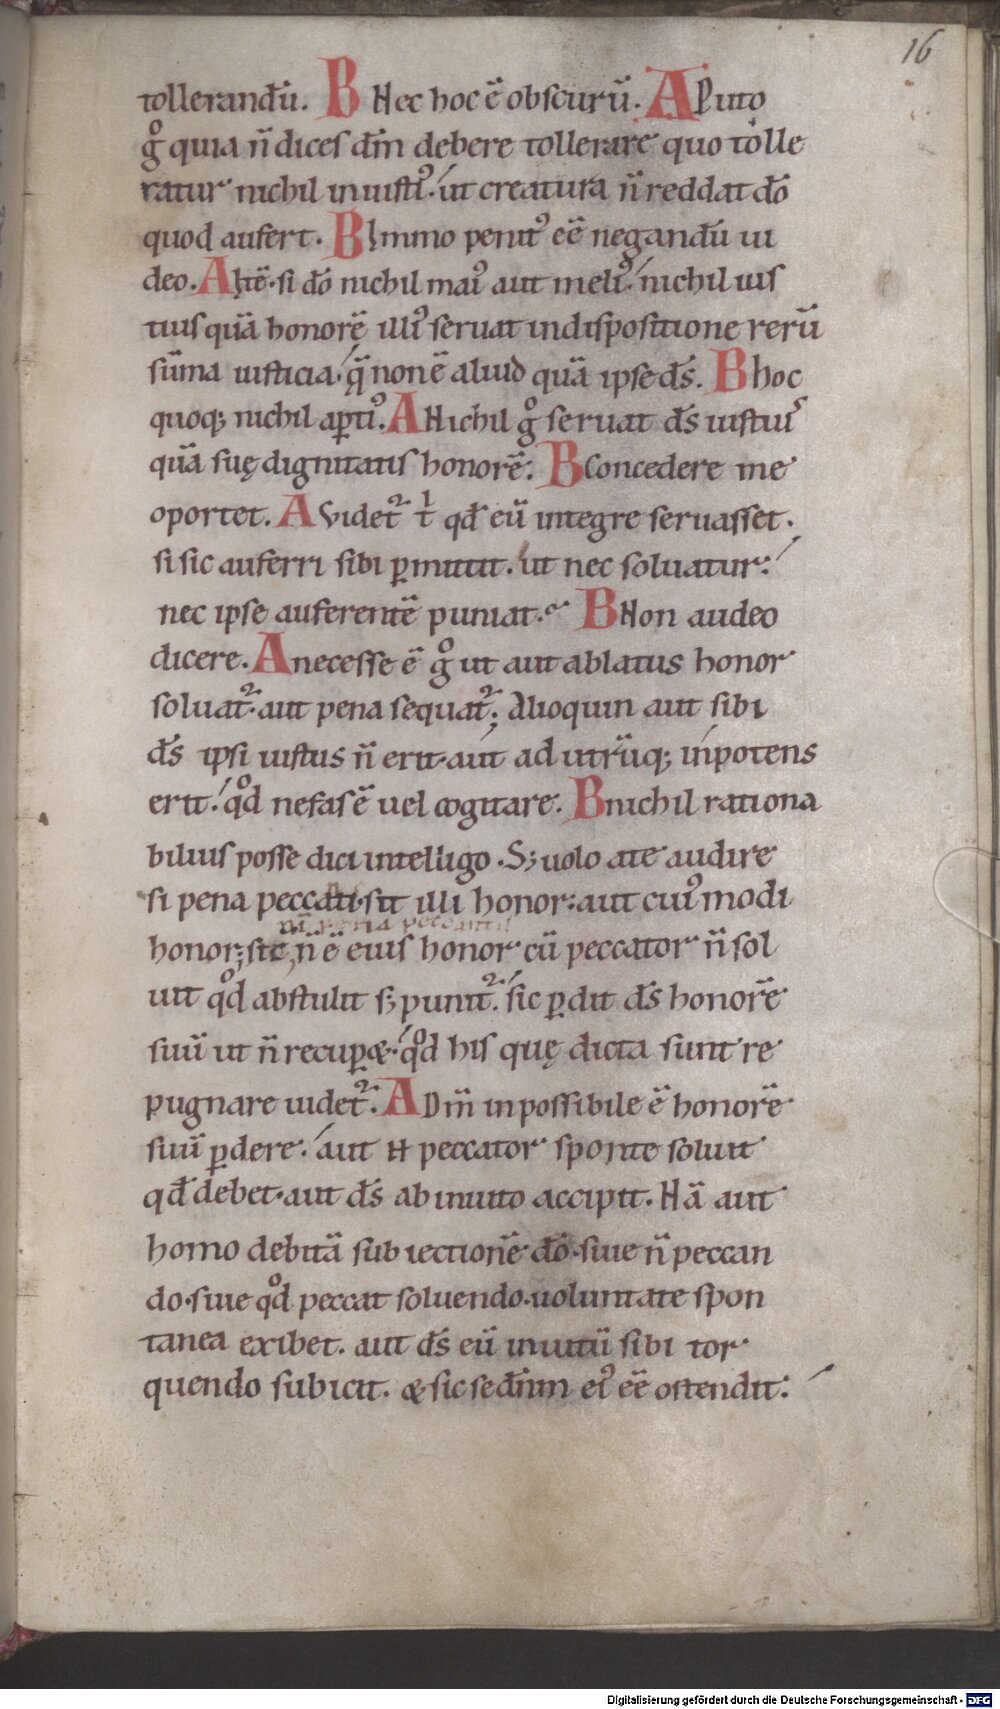 16
tollerandū. B Nec hoc ē obscurū. A Puto
gͦ quia n̄ dices dm̄ debere tollerare quo tolle
ratur nichil iniustiꝰ. ut creatura n̄ reddat dō
quod aufert. B Immo penitꝰ eē negandū ui
deo. A Itē. si dō nichil maiꝰ aut meliꝰ. nichil ius
tius quā honorē illiꝰ seruat in dispositione rerū
sūma iusticia. q̄ non ē aliud quā ipse ds̄. B hoc
quoq; nichil aꝑtiꝰ. A Nichil gͦ seruat ds̄ iustius
quā suę dignitatis honorē. B Concedere me
oportet. A Videt᷑ t̄ qd̄ eū integre seruasset.
si sic auferri sibi ꝑmittit. ut nec soluatur.
nec ipse auferentē puniat. B Non audeo
dicere. A necesse ē gͦ ut aut ablatus honor
soluat᷑. aut pena sequat᷑; Alioquin aut sibi
ds̄ ipsi iustus n̄ erit. aut ad utrūq; inpotens
erit. qͦd nefas ē uel cogitare. B nichil rationa
bilius posse dici intelligo. S; uolo a te audire
si pena peccati sit illi honor: aut cuiꝰmodi
pena peccantis
honor; sit, n̄ ē eius honor cū peccator n̄ sol
uit qͦd abstulit s; punit᷑. sic ꝑdit ds̄ honorē
suū ut n̄ recuꝑ&. qͦd his quę dicta sunt re
pugnare uidet᷑. A Dm̄ inpossibile ē honorē
suū ꝑdere. aut H peccator sponte soluit
qd̄ debet. aut ds̄ ab inuito accipit. Nā aut
homo debitā subiectionē dō. siue n̄ peccan
do. siue qͦd peccat soluendo. uoluntate spon
tanea exibet. aut ds̄ eū inuitū sibi tor
quendo subicit. & sic se dn̄m eiꝰ eē ostendit.
Digitalisierung gefördert durch die Deutsche Forschungsgemeinschaft - DFG